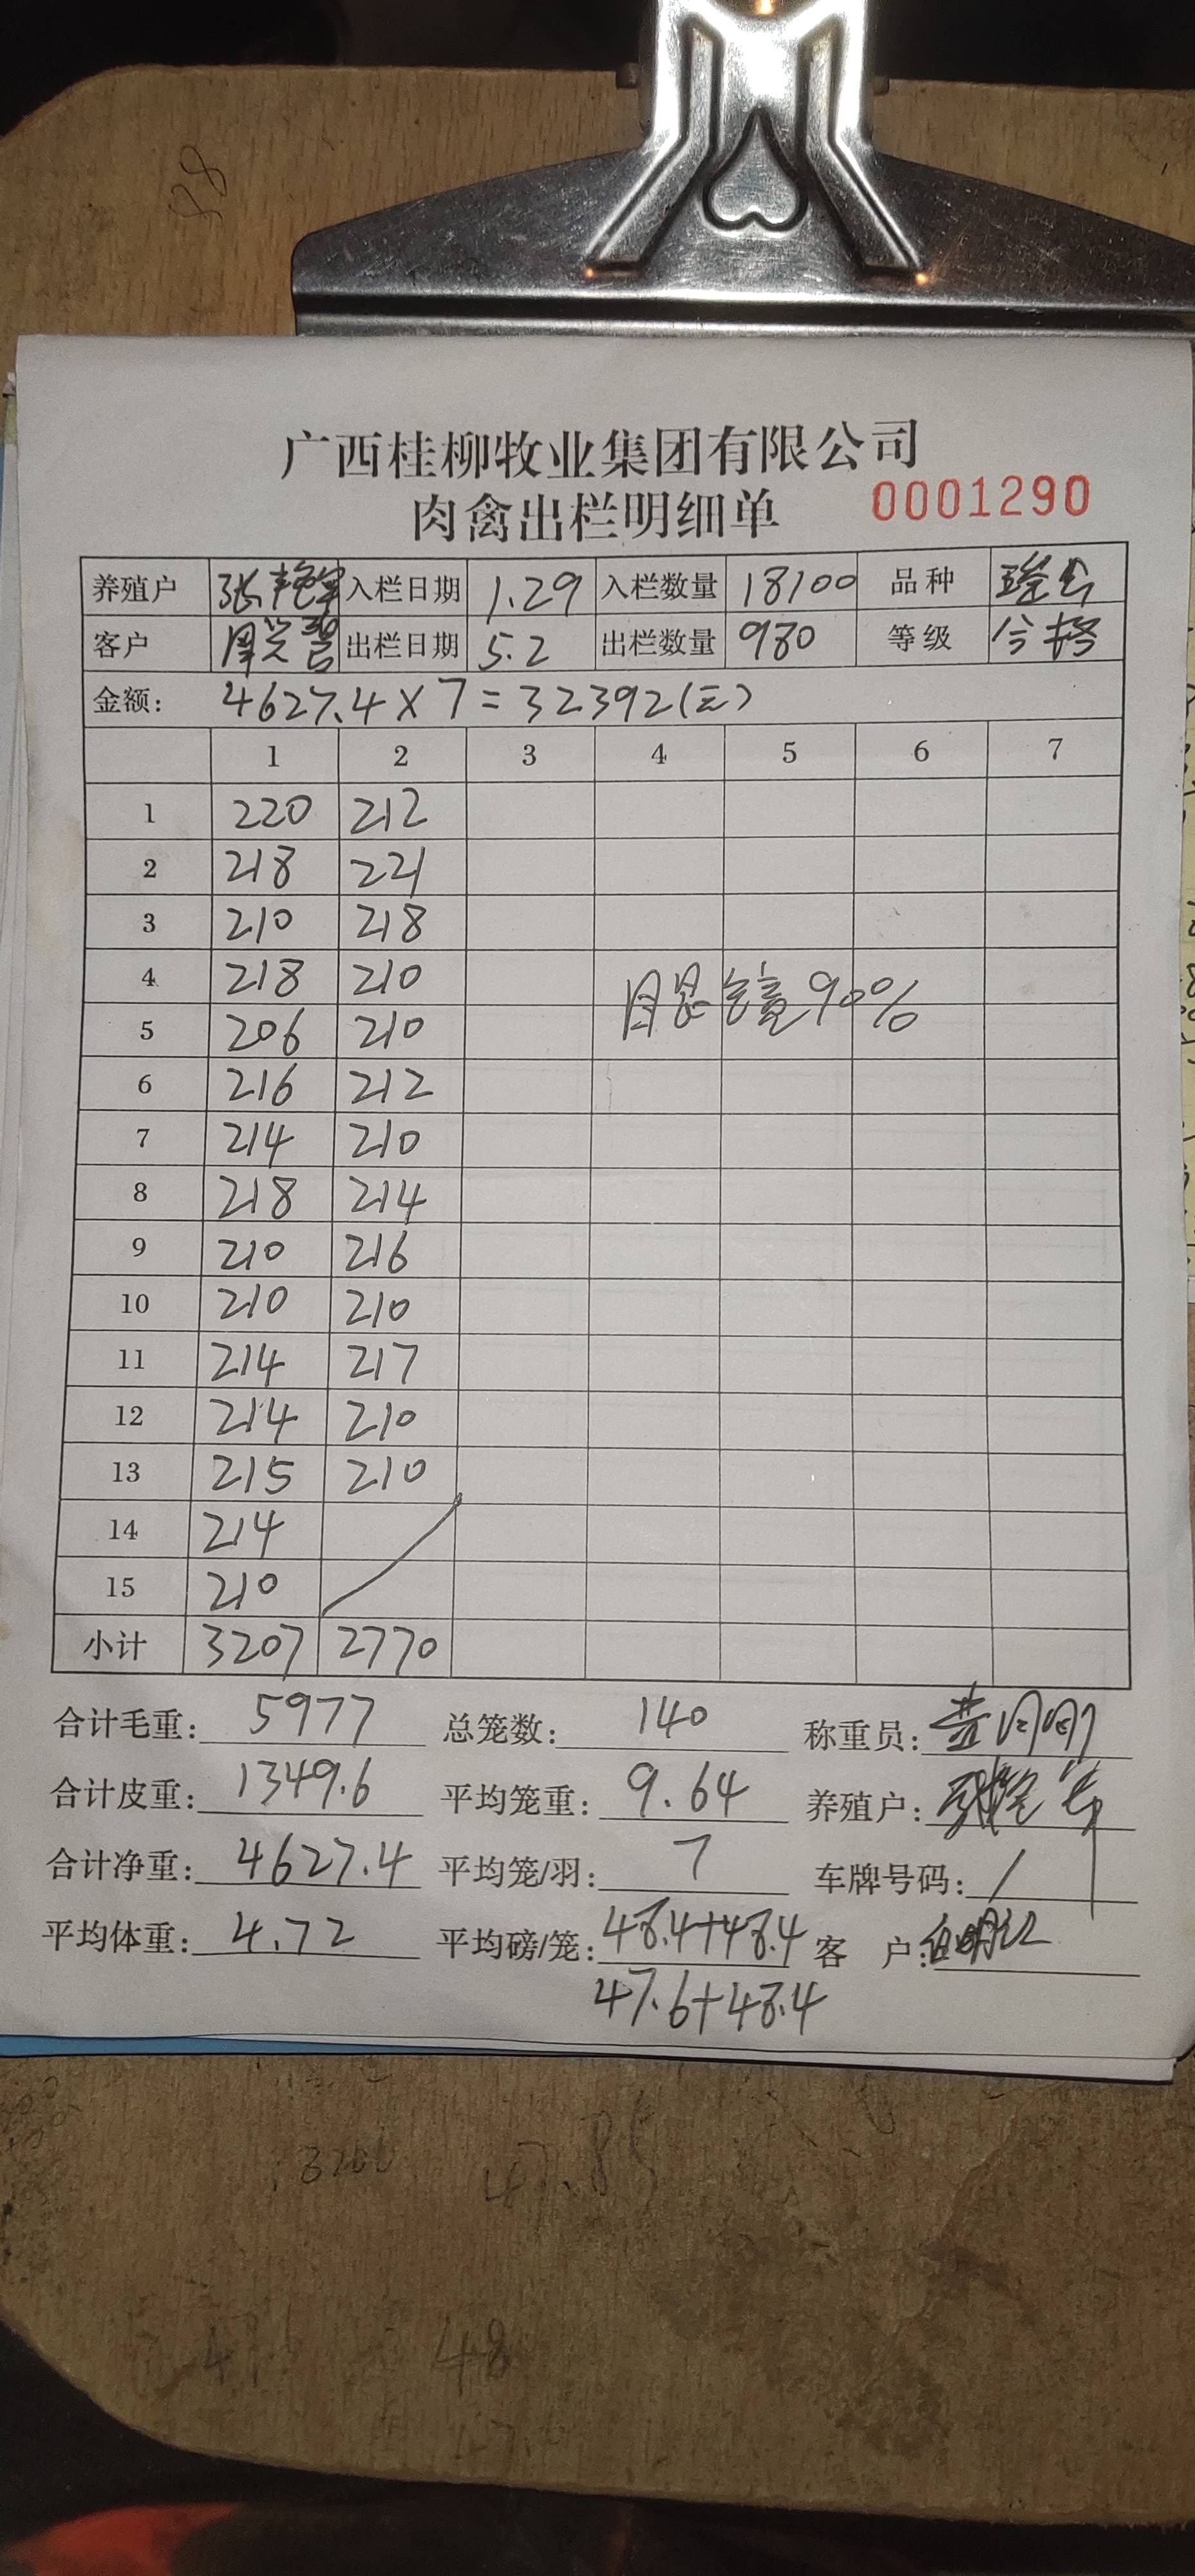 广西桂柳牧业集团有限公司
肉禽出栏明细单 0001290
养殖户 张艳军 入栏日期 1.29 入栏数量 18100 品种
客户 出栏日期 5.2 出栏数量 980 等级 合格
金额: 4627.4×7=32392(元)
1 2 3 4 5 6 7
1 220 212
2 218 221
3 210 218
4 218 210
5 206 210
6 216 212
7 214 210
8 218 214
9 210 216
10 210 210
11 214 217
12 214 210
13 215 210
14 214
15 210
小计 3207 2770
90%
合计毛重: 5977 总笼数: 140 称重员:
合计皮重: 1349.6 平均笼重: 9.64 养殖户:
合计净重: 4627.4 平均笼/羽: 7 车牌号码: /
平均体重: 4.72 平均磅/笼: 48.4+48.4 客 户:
47.6+48.4
48
3206
47.85
48